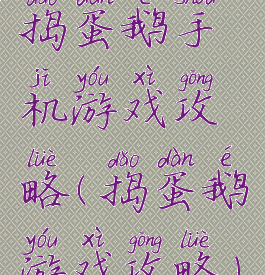 dǎo dàn é shǒu
捣蛋鹅手
jī yóu xì gōng
机游戏攻
lüè dǎo dàn é
略(捣蛋鹅
yóu xì gōng lüè
游戏攻略)